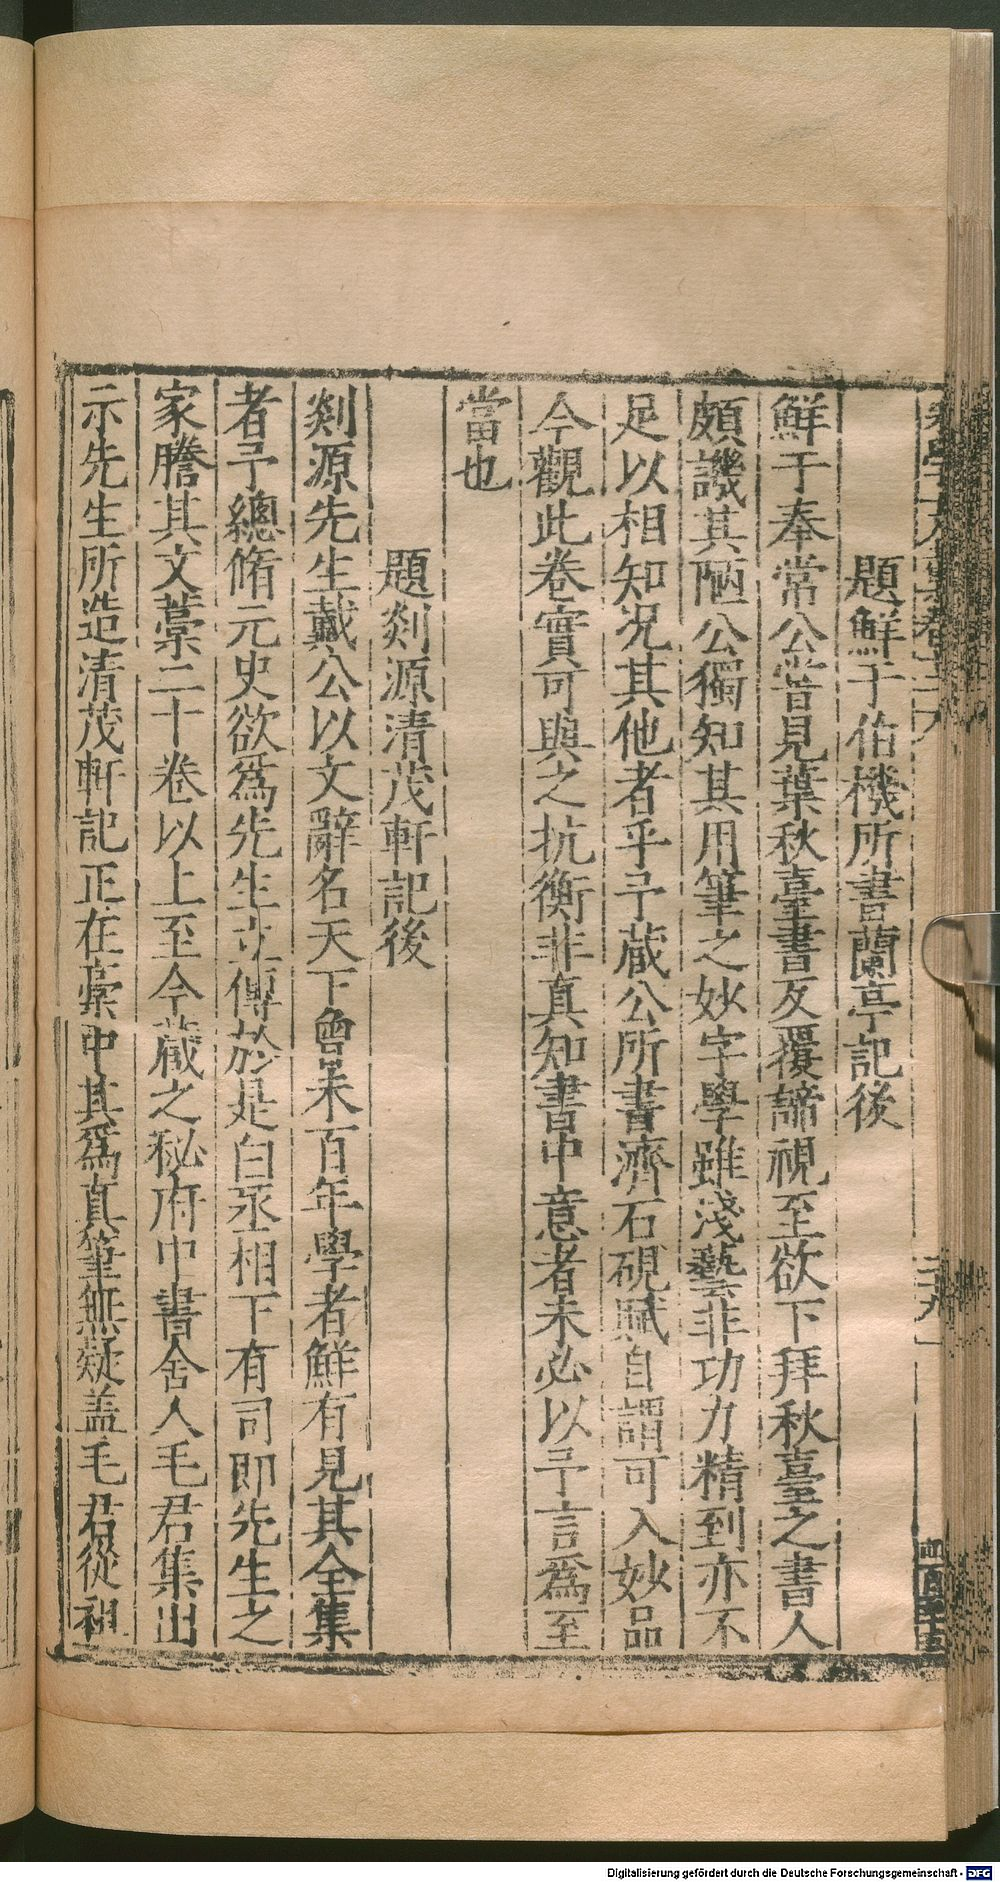 題鮮于伯機所書蘭亭記後
鮮于奉常公嘗見葉秋臺書反覆諦視至欲下拜秋臺之書人
頗譏其陋公獨知其用筆之妙字學雖淺藝非功力精到亦不
足以相知况其他者乎予蔵公所書濟石硯賦自謂可入妙品
今觀此卷實可與之抗衡非真知書中意者未必以予言爲至
當也
題剡源清茂軒記後
剡源先生戴公以文辭名天下曾未百年學者鮮有見其全集
者予總脩元史欲爲先生立傳於是白丞相下有司即先生之
家謄其文藳二十卷以上至今蔵之秘府中書舍人毛君集出
示先生所造清茂軒記正在藳中其爲真筆無疑盖毛君從祖
Digitalisierung gefördert durch die Deutsche Forschungsgemeinschaft - DFG